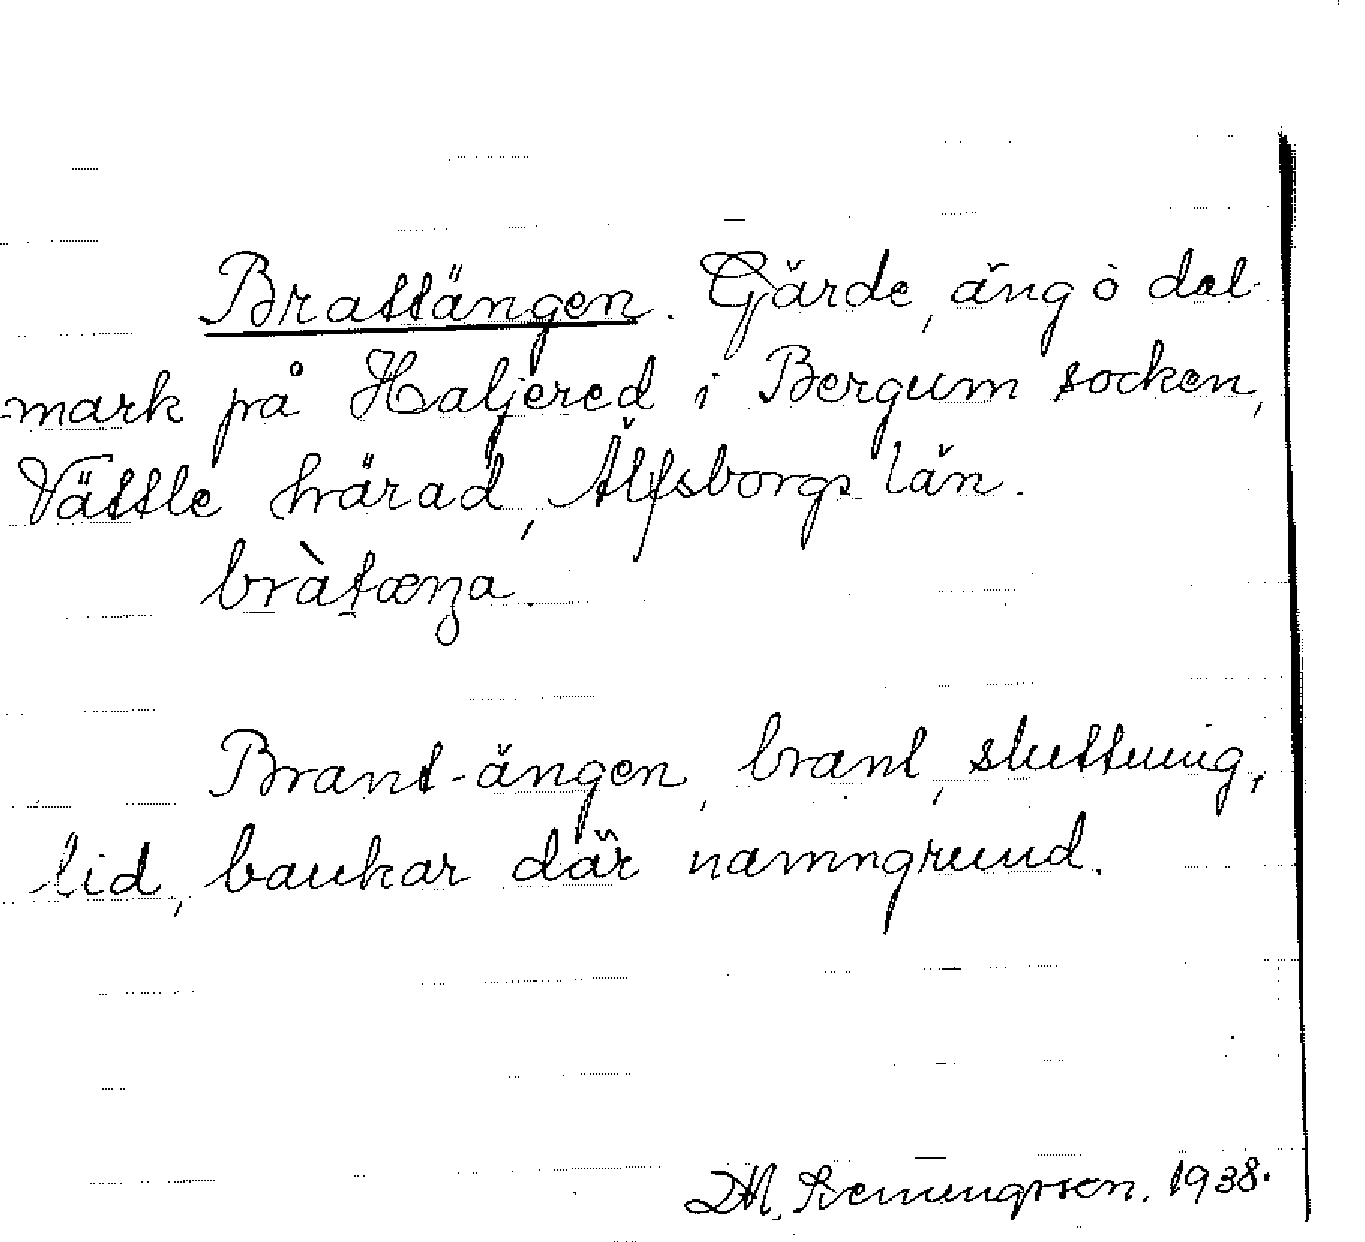 Brattängen. Gärde, äng ò dal
mark på Haljered i Bergum socken,
Vättle härad, Älfsborgs län.
bràtæŋa.
Brant-ängen, brant, sluttning,
lid, baukar där namngrund.
1938.